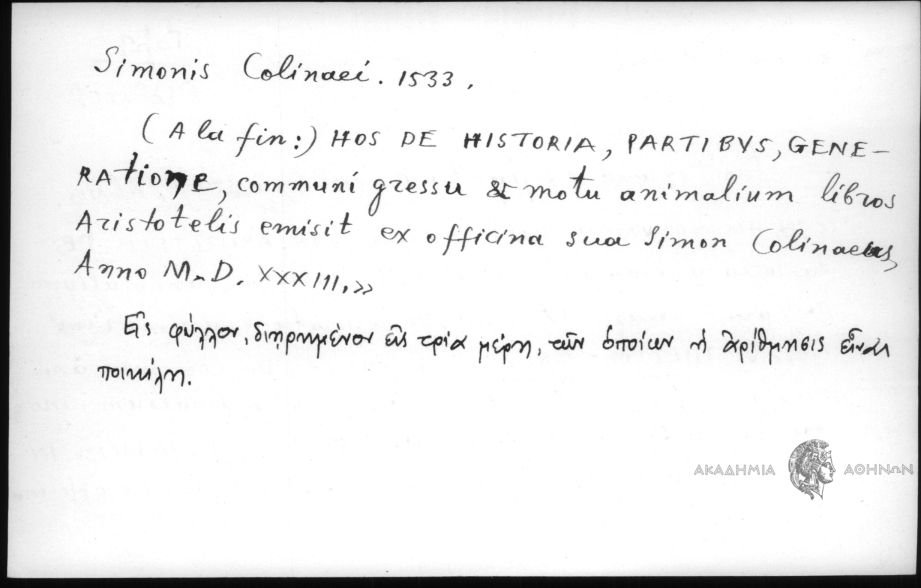 Simonis Colinaei. 1533.
(A la fin:) HOS DE HISTORIA, PARTIBVS, GENE-
RAtione, communi gressu & motu animalium libros
Aristotelis emisit ex officina sua Simon Colinaeus,
Anno M.D. XXXIII,»
Εἰς φύλλον, διῃρημένον εἰς τρία μέρη, τῶν ὁποίων ἡ ἀρίθμησις εἶναι
ποικίλη.
ΑΚΑΔΗΜΙΑ ΑΘΗΝΩΝ